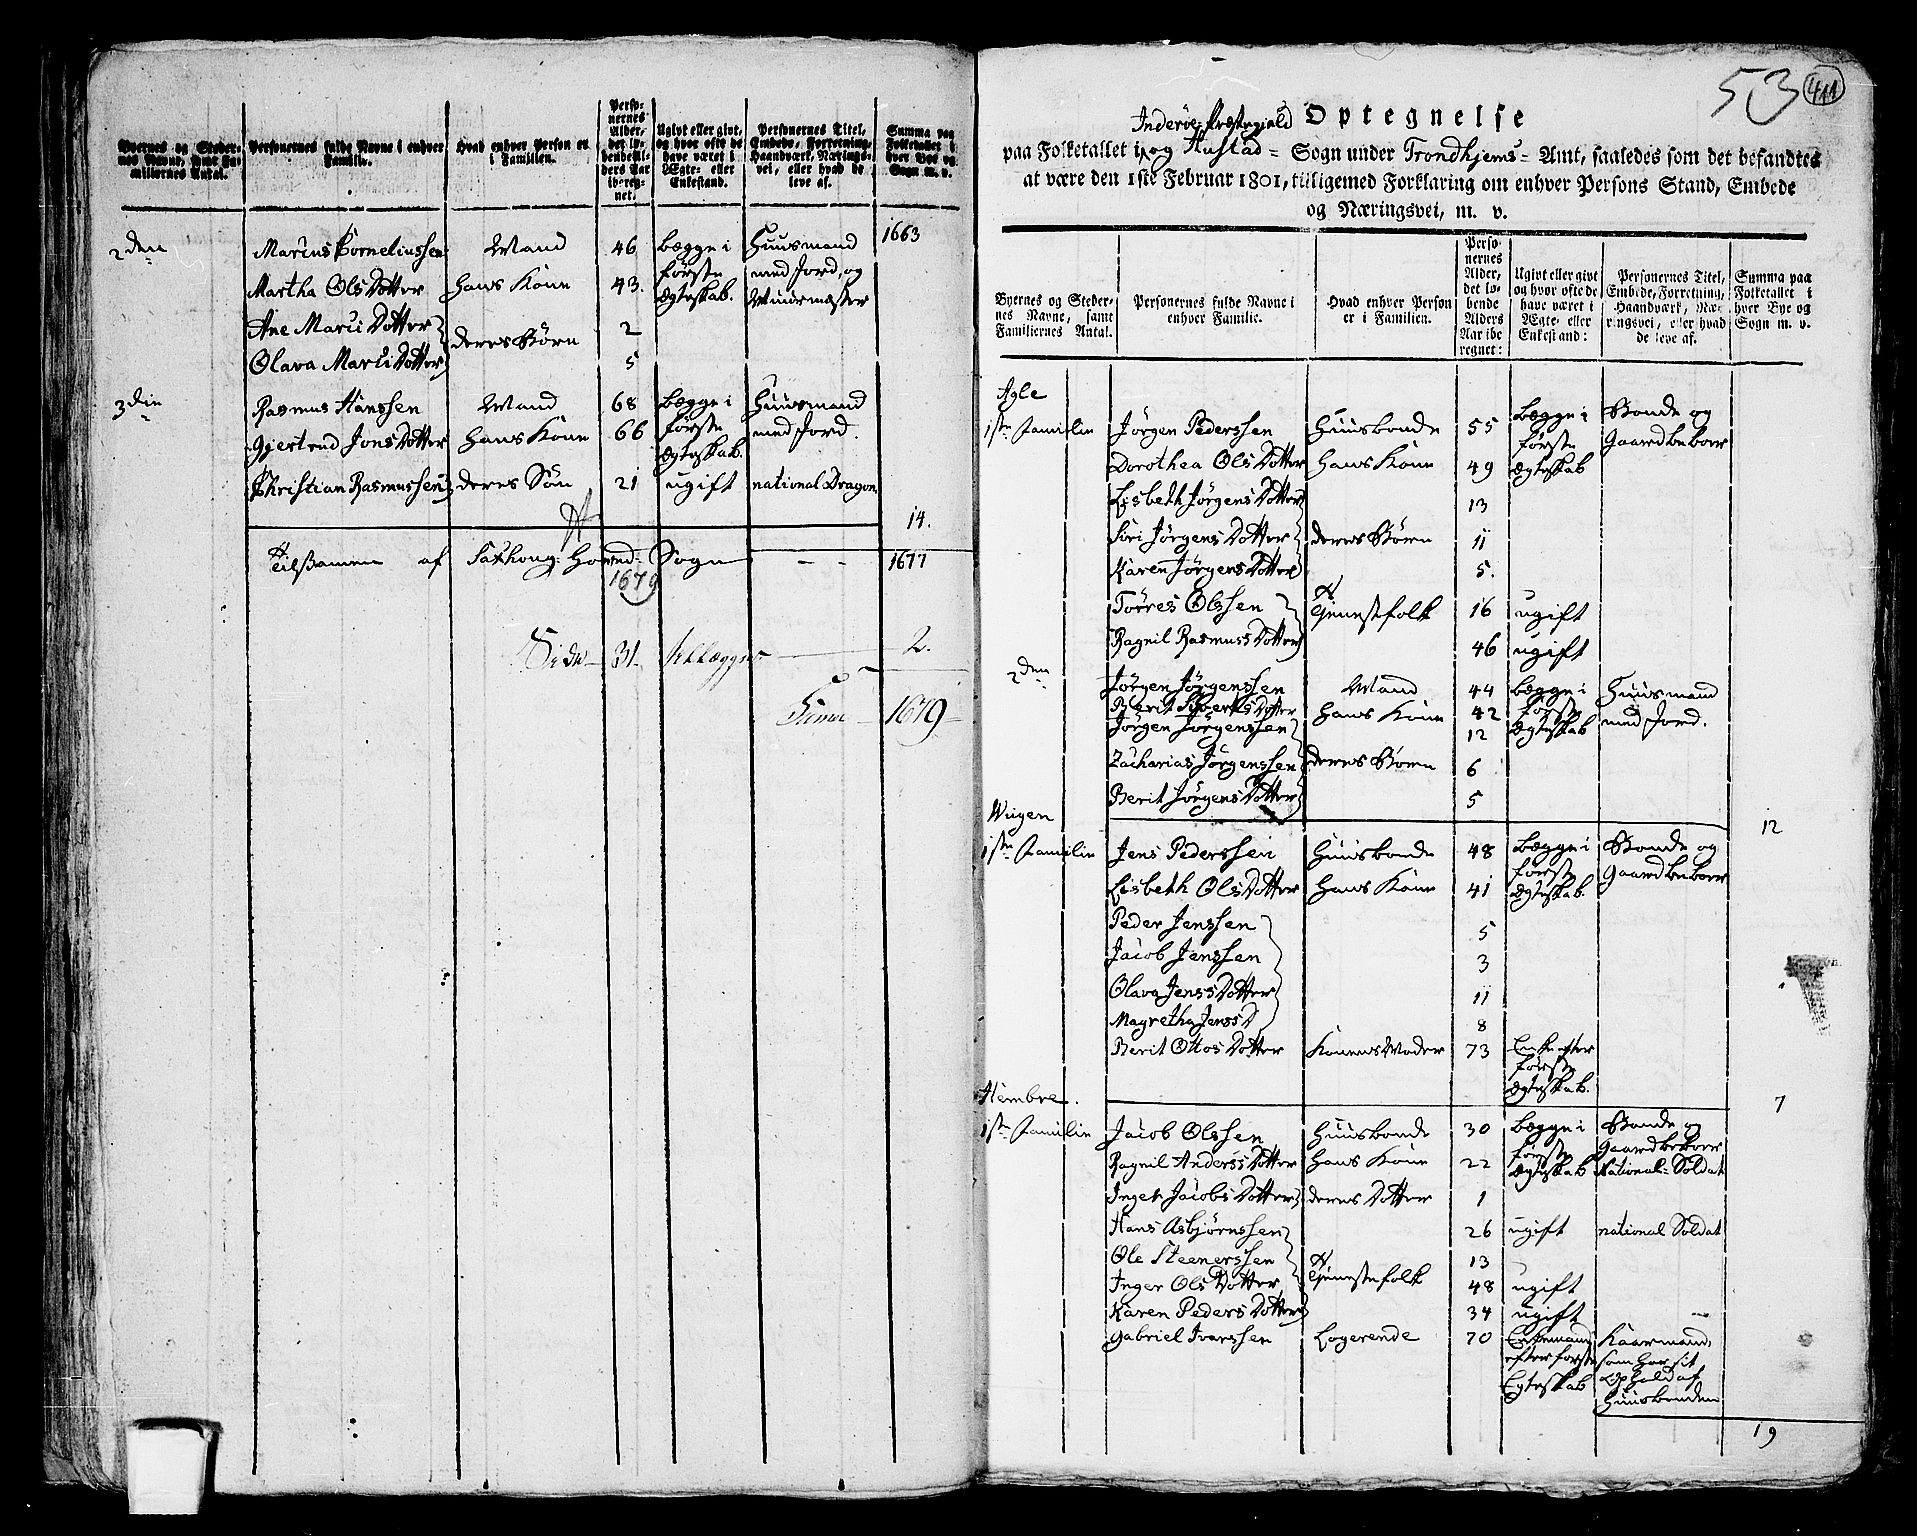 Byernes og Steder-
nes Navne, samt Fa-
miliernes Antal.
Personernes fulde Navne i enhver
Familie.
Hvad enhver Person er
i Familien.
Perso-
nernes
Alder,
det lø-
bende Al-
ders Aar
ibereg-
net.
Ugivt eller givt,
og hvor ofte de
have været i
Ægte- eller
Enkestand.
Personernes Titel,
Embede, Forretning,
Haandværk, Nærings-
vei, eller hvad de
leve af.
Summa paa
Folketallet i
hver Bye og
Sogn m. v.
1663
2den Marcus Corneliussen Mand 46 begge i Huusmand
Martha Ols Dotter hans Kone 43. første med Jord, og
ægteskab. Muurmester
Ane Marci Dotter 2
deres Børn
Olava Marci Dotter 5
3die Rasmus Hanssen Mand 68 begge i Huusmand
Gjertrud Jons Dotter hans Kone 66 første med Jord.
ægteskab.
Christian Rasmussen deres Søn 21 ugift national Dragon
14.
af Sogn - - 1677
1679
Side 31 tillægges 2.
Summa 1679
53
411
Optegnelse
Inderøe Præstegield
paa Folketallet i og Hustad = Sogn under Trondhjems = Amt, saaledes som det befandtes
at være den 1ste Februar 1801, tilligemed Forklaring om enhver Persons Stand, Embede
og Næringsvei, m. v.
Byernes og Steder-
nes Navne, samt
Familiernes Antal.
Personernes fulde Navne i
enhver Familie.
Hvad enhver Person
er i Familien.
Perso-
nernes
Alder,
det lø-
bende
Alders
Aar ibe
regnet:
Ugivt eller givt
og hvor ofte de
have været i
Ægte- eller
Enkestand:
Personernes Titel,
Embede, Forretning,
Haandværk, Næ-
ringsvei, eller hvad
de leve af.
Summa paa
Folketallet i
hver Bye og
Sogn m. v.
Agle
1ste Familie Jörgen Pederssen Huusbonde 55 begge i Bonde og
første Gaardbeboer
Dorothea Ols Dotter hans Kone 49 ægteskab
Lisbeth Jörgens Dotter 13
Siri Jörgens Dotter deres Børn 11
Karen Jörgens Dotter 5.
Torres Olssen Tjenestefolk 16 ugift
Ragnil Rasmuss Dotter 46 ugift
2den Jörgen Jörgenssen Mand 44 begge i Huusmand
Berit Siverts Dotter hans Kone 42 første med Jord.
Jörgen Jörgenssen 12 ægteskab
Zacharias Jörgenssen deres Børn 6
Berit Jörgens Dotter 5
12
Wiigen
1ste Familie Jens Pederssen Huusbonde 48 begge i Bonde og
første Gaardbeboer
Lisbeth Ols Dotter hans Kone 41 ægteskab.
Peder Jenssen 5
Jacob Jenssen 3
Olava Jenss Dotter 11
Magretha Jenss D 8
Berit Ottos Dotter Konens Moder 73 Enke efter
første
ægteskab.
7
Hembre.
1ste Familie Jacob Olssen Huusbonde 30 begge i Bonde og
første Gaardbeboer
Ragnil Anderss Dotter hans Kone 22 ægteskab National: Soldat
Inger Jacobs Dotter deres Dotter 1
Hans Asbjørnssen 26 ugift national Soldat
Ole Steenerssen 13
Tjenestefolk
Inger Ols Dotter 48 ugift
Karen Peders Dotter 34 ugift
Gabriel Ivarssen Logerende 70 Enkemand Kaarmand,
efter første som har sit
Egteskab Ophold af
Huusbonden
19